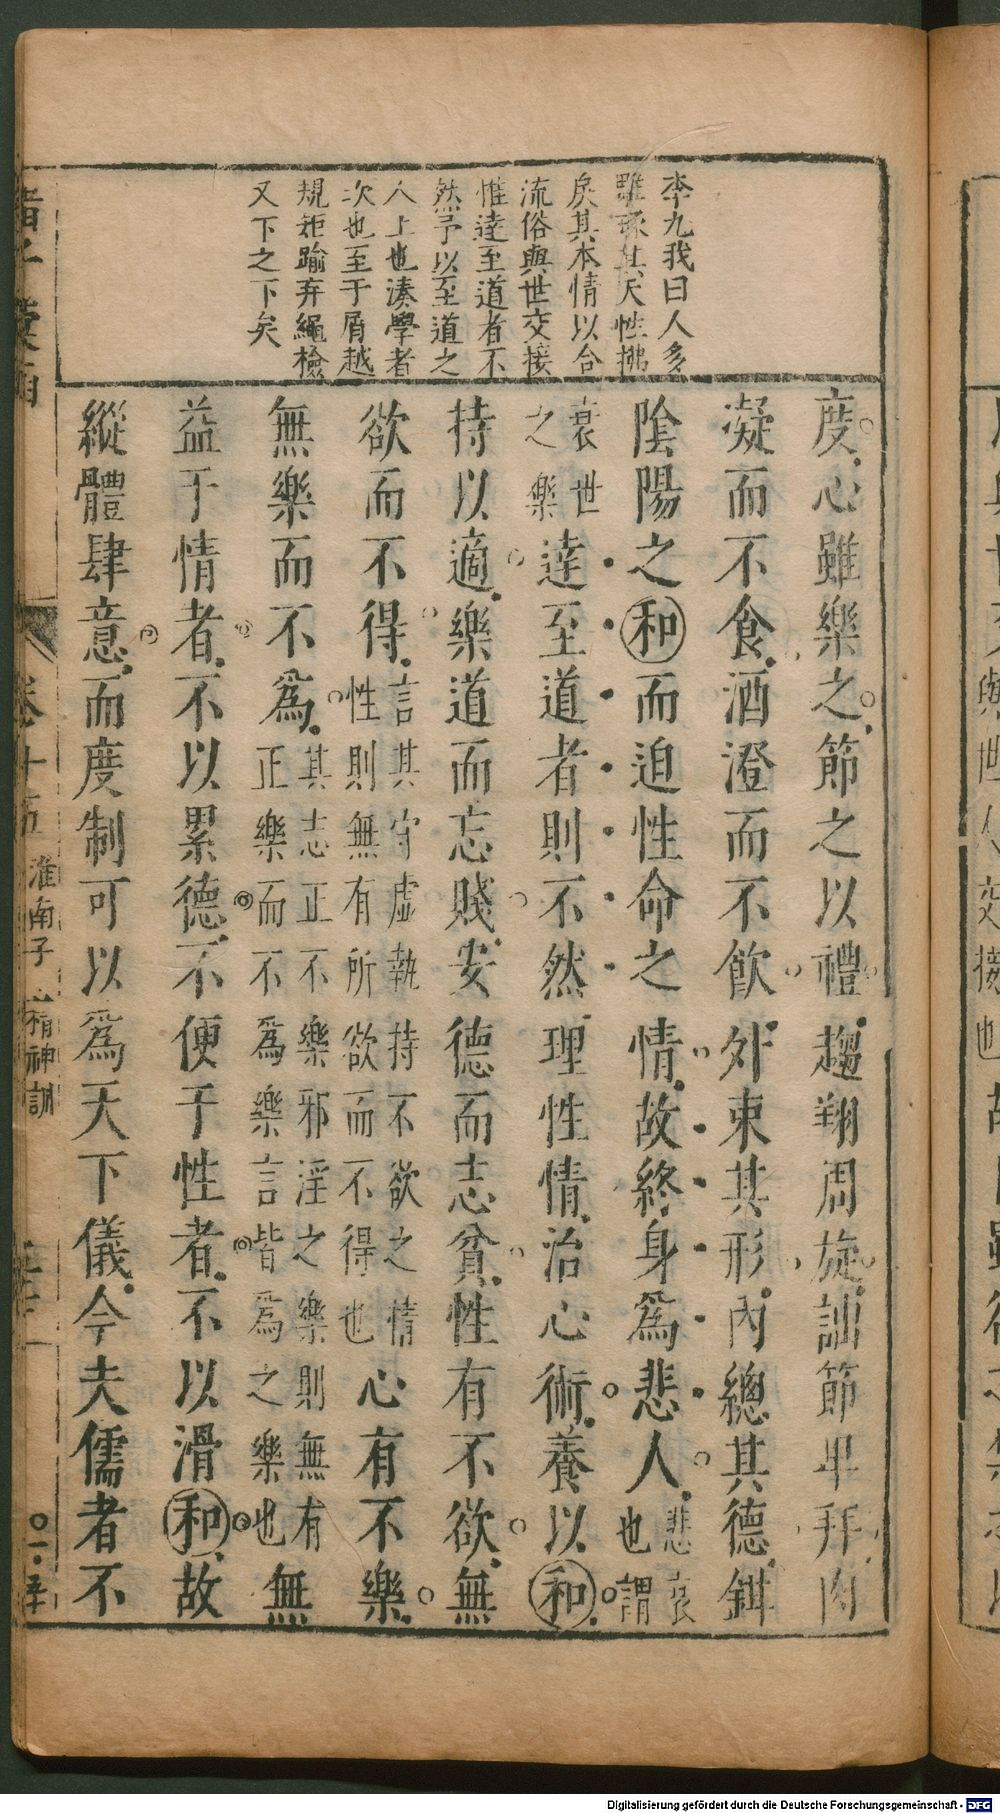 李九我曰人多
雖琢其天性拂
戾其本情以合
流俗與世交接
惟達至道者不
然予以至道之
人上也湊學者
次也至于屑越
規矩踰弃繩檢
又下之下矣
度心雖樂之節之以禮趨翔周旋詘節卑拜肉
凝而不食酒澄而不飲外束其形內總其德鉗
陰陽之和而迫性命之情故終身爲悲人悲哀也謂
衰世之樂達至道者則不然理性情治心術養以和
持以適樂道而忘賤安德而志貧性有不欲無
欲而不得言其守虛執持不欲之情性則無有所欲而不得也心有不樂
無樂而不爲其志正不樂邪淫之樂則無有正樂而不爲樂言皆爲之樂也無
益于情者不以累德不便于性者不以滑和故
縱體肆意而度制可以爲天下儀今夫儒者不
卷十五
淮南子
精神訓
Digitalisierung gefördert durch die Deutsche Forschungsgemeinschaft - DFG